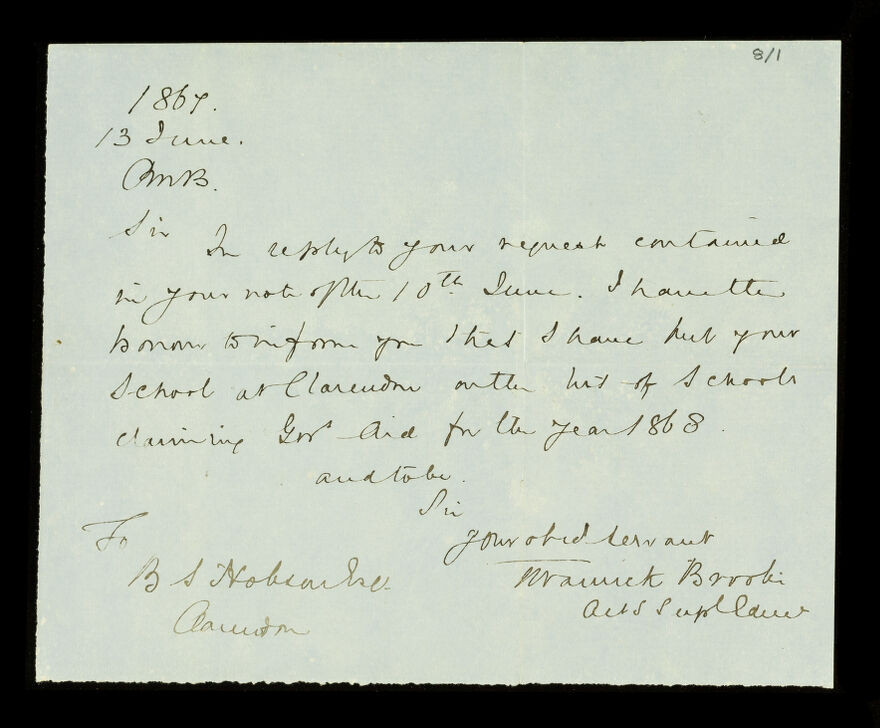 8/1
1867.
13 June.
PMB.
Sir In reply to your request contained
in your note of the 10th June. I have the
honour to inform you that I have put your
School at Clarendon on the list of Schools
claiming Govt Aid for the year 1868.
and to be.
Sir
your obed servant
To
B S Hobson Esq.
Warwick Brooks
Clarendon